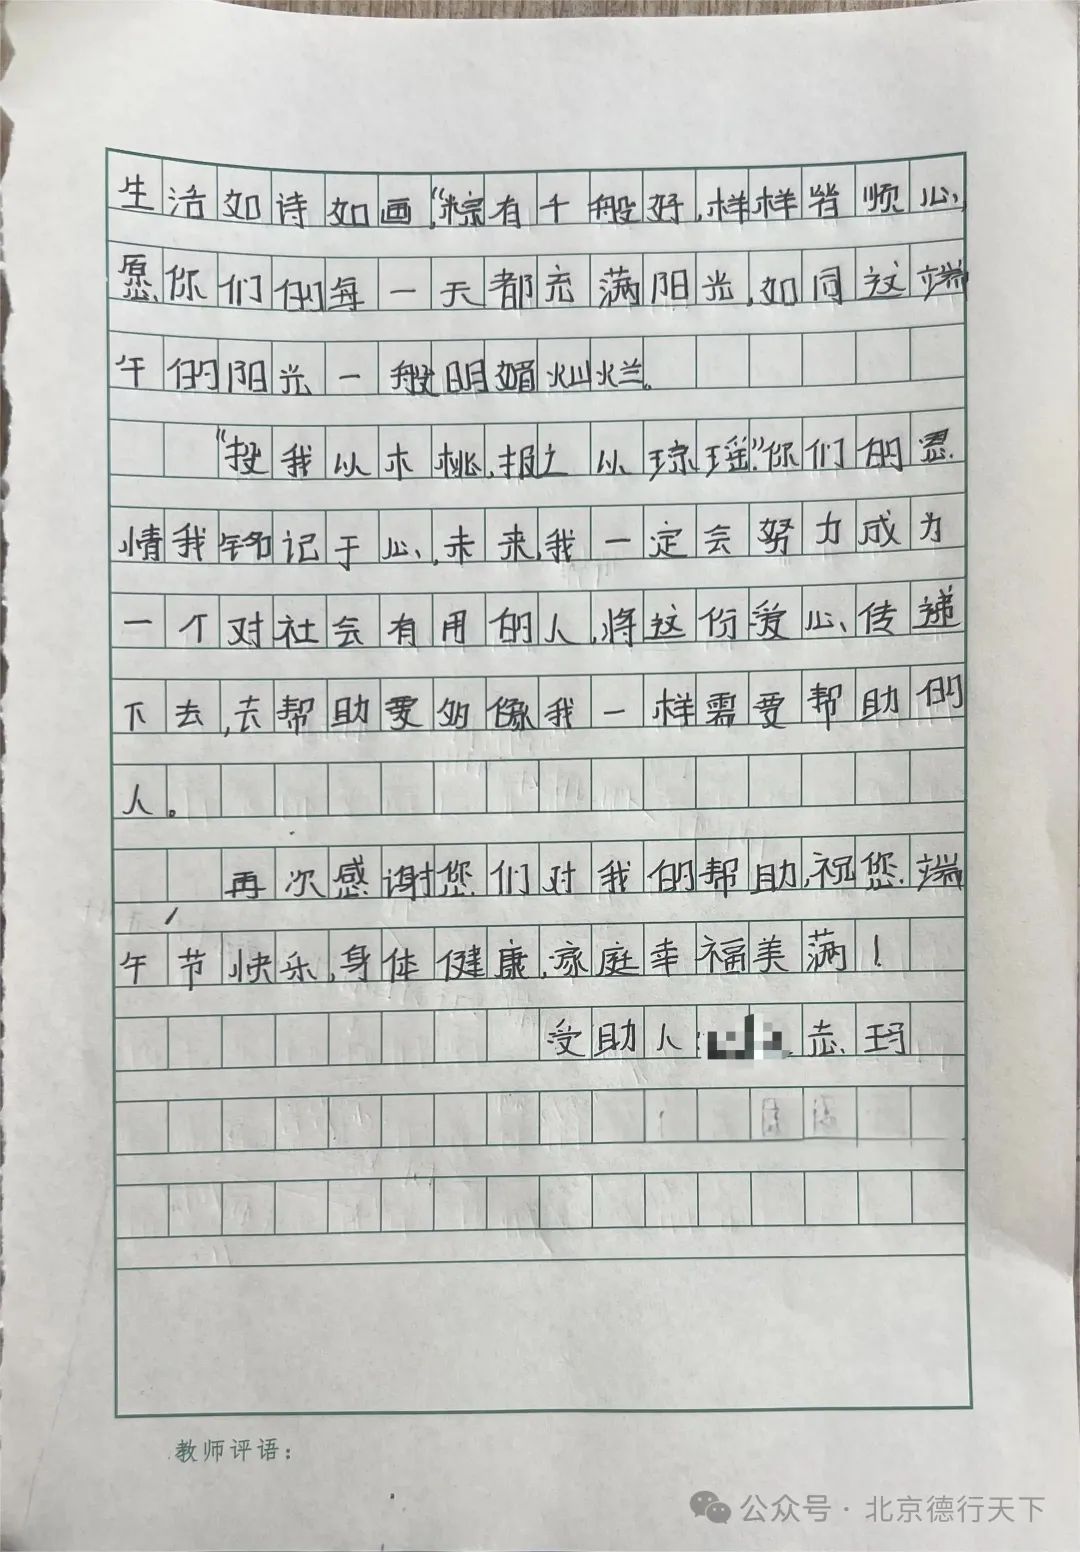 生活如诗如画,“粽有千般好,样样皆顺心,
愿你们的每一天都充满阳光,如同这端
午的阳光一般明媚灿烂。
“投我以木桃,报之以琼瑶”.你们的恩
情我铭记于心,未来,我一定会努力成为
一个对社会有用的人,将这份爱心、传递
下去,去帮助更多像我一样需要帮助的
人。
再次感谢您们对我的帮助,祝您端
午节快乐,身体健康,家庭幸福美满!
受助人: 志玛
教师评语:
公众号·北京德行天下